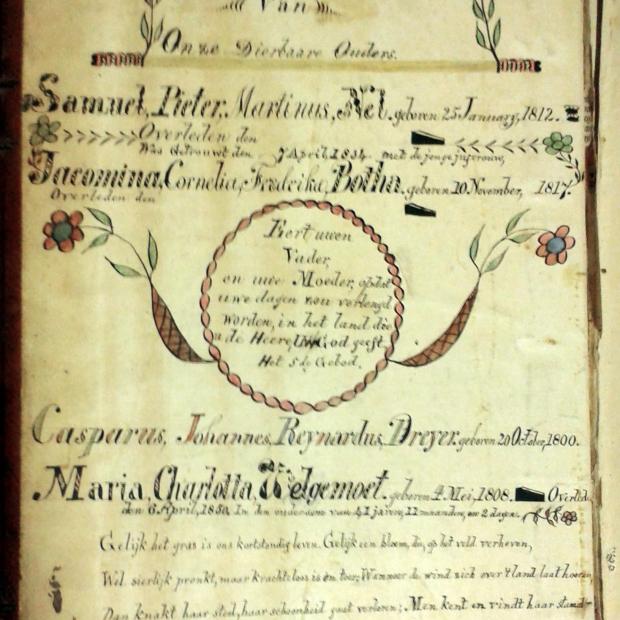 Van
Onze Dierbaare Ouders.
Samuel, Pieter, Martinus, Nel. geboren 25 January, 1812.
Overleden den
Was Getrouwt den 7 April, 1834. met de jonge jufrouw,
Jacomina, Cornelia, Frederika, Botha. geboren 10 November, 1817.
Overleden den
Eert uwen
Vader,
en uwe Moeder, opdat
uwe dagen verlengd
worden, in het land die
u de Heere, UW God geeft.
Het 5de Gebod.
Casparus, Johannes, Reynardus, Dreyer. geboren 20 October, 1800.
Maria, Charlotta, Telgemoet. geboren 4 Mei, 1808. Overled
den 6 April, 1850. In den ouderdom van 41 jaren, 11 maanden, en 2 dagen.
Gelijk het gras is ons kortstondig leven. Gelijk een bloem, die, op het veld verheven,
Wel sierlijk pronkt, maar krachteloos is en teer; Wanneer de wind zich over 't land laat hooren,
Dan knakt haar steel, haar schoonheid gaat verloren; Men kent en vindt haar standp